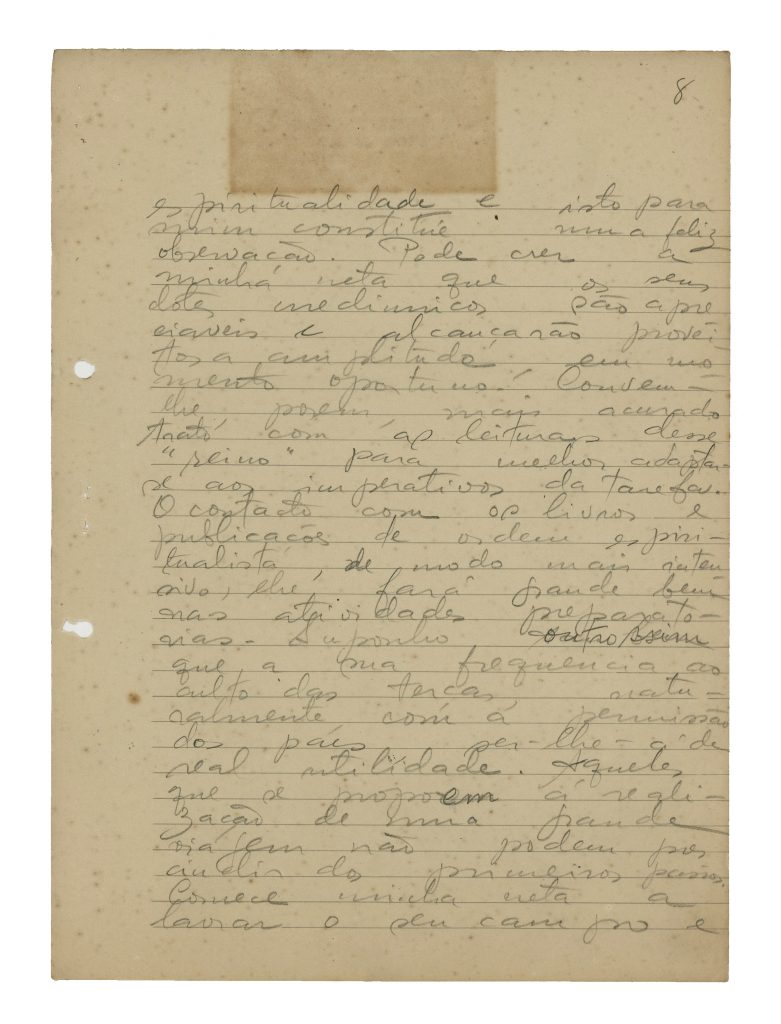 8
espiritualidade e isto para
mim constitúe uma feliz
observação. Pode crer a
minha neta que os seus
dotes mediumicos são apre
ciaveis e alcançarão provei
tosa amplitude em mo
mento oportuno! Convem-
lhe porem mais acurado
trato com as leituras desse
"reino" para melhor adaptar-
se aos imperativos da tarefa.
O contacto com os livros e
publicações de ordem espiri-
tualista, de modo mais inten
sivo, lhe fará grande bem
nas atividades preparato-
rias. Suponho outrossim
que, a sua frequencia ao
culto das terças, natu-
ralmente com á permissão
dos pais ser-lhe-á de
real utilidade. Aqueles
que se propoem á reali-
zação de uma grande
viagem não podem pres
cindir dos primeiros passos.
Comece minha neta a
lavrar o seu campo e